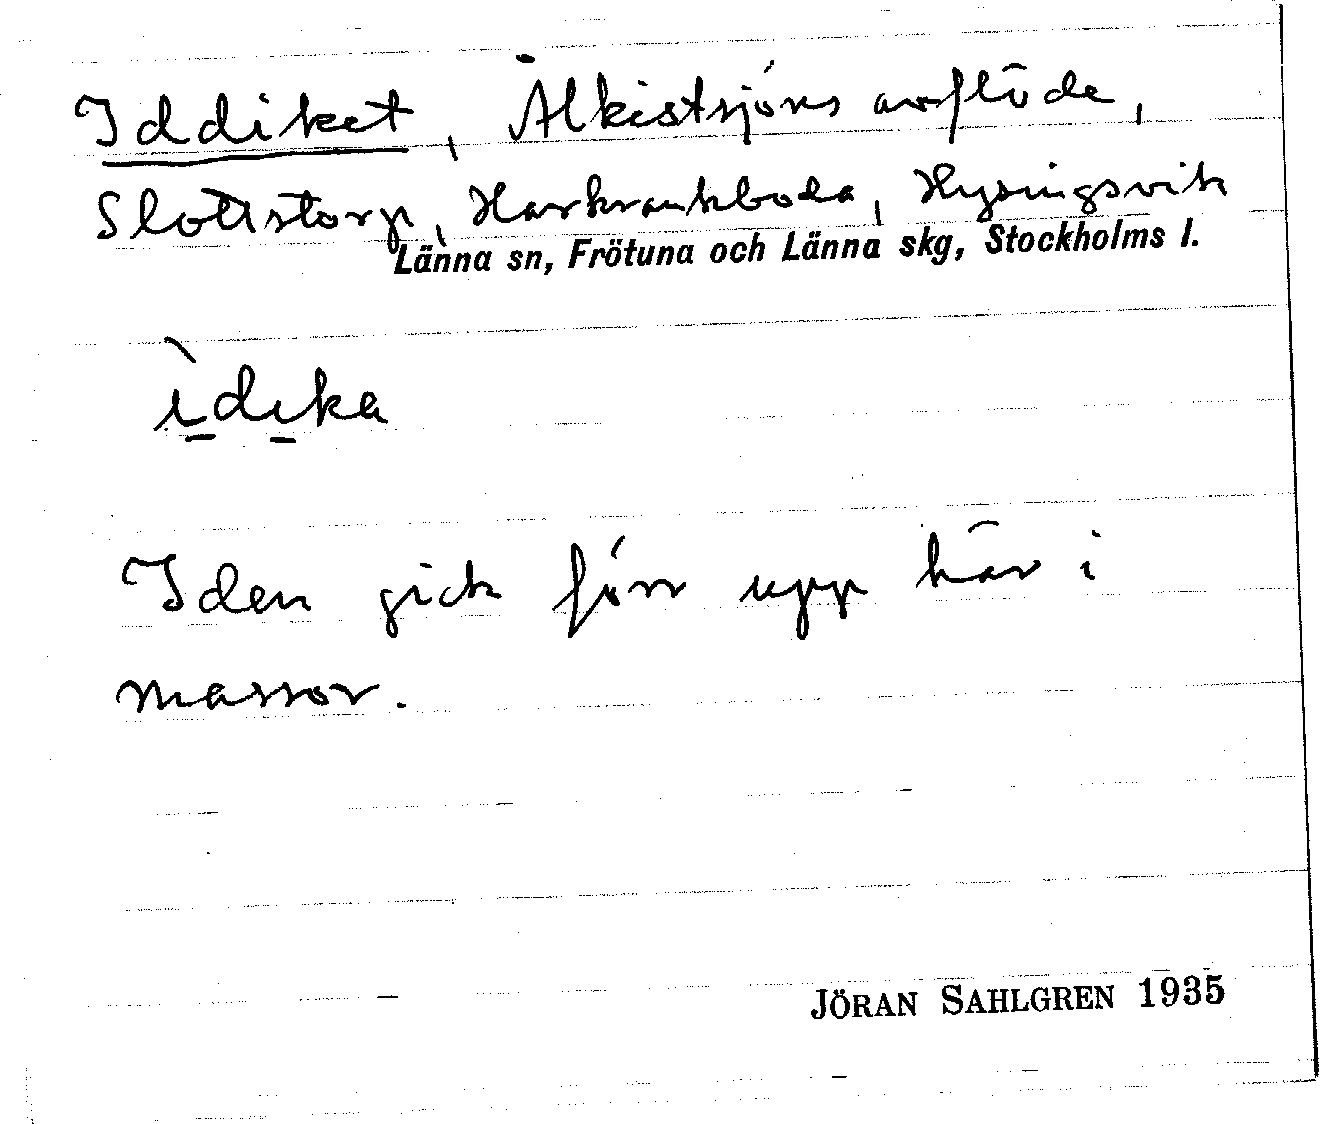 Iddiket, Ålkistsjöns avflöde,
Slottstorp, Harkrankboda, Hysingsvik
Länna sn, Frötuna och Länna skg, Stockholms l.
ìdika
Iden gick förr upp här i
massor.
JÖRAN SAHLGREN 1935